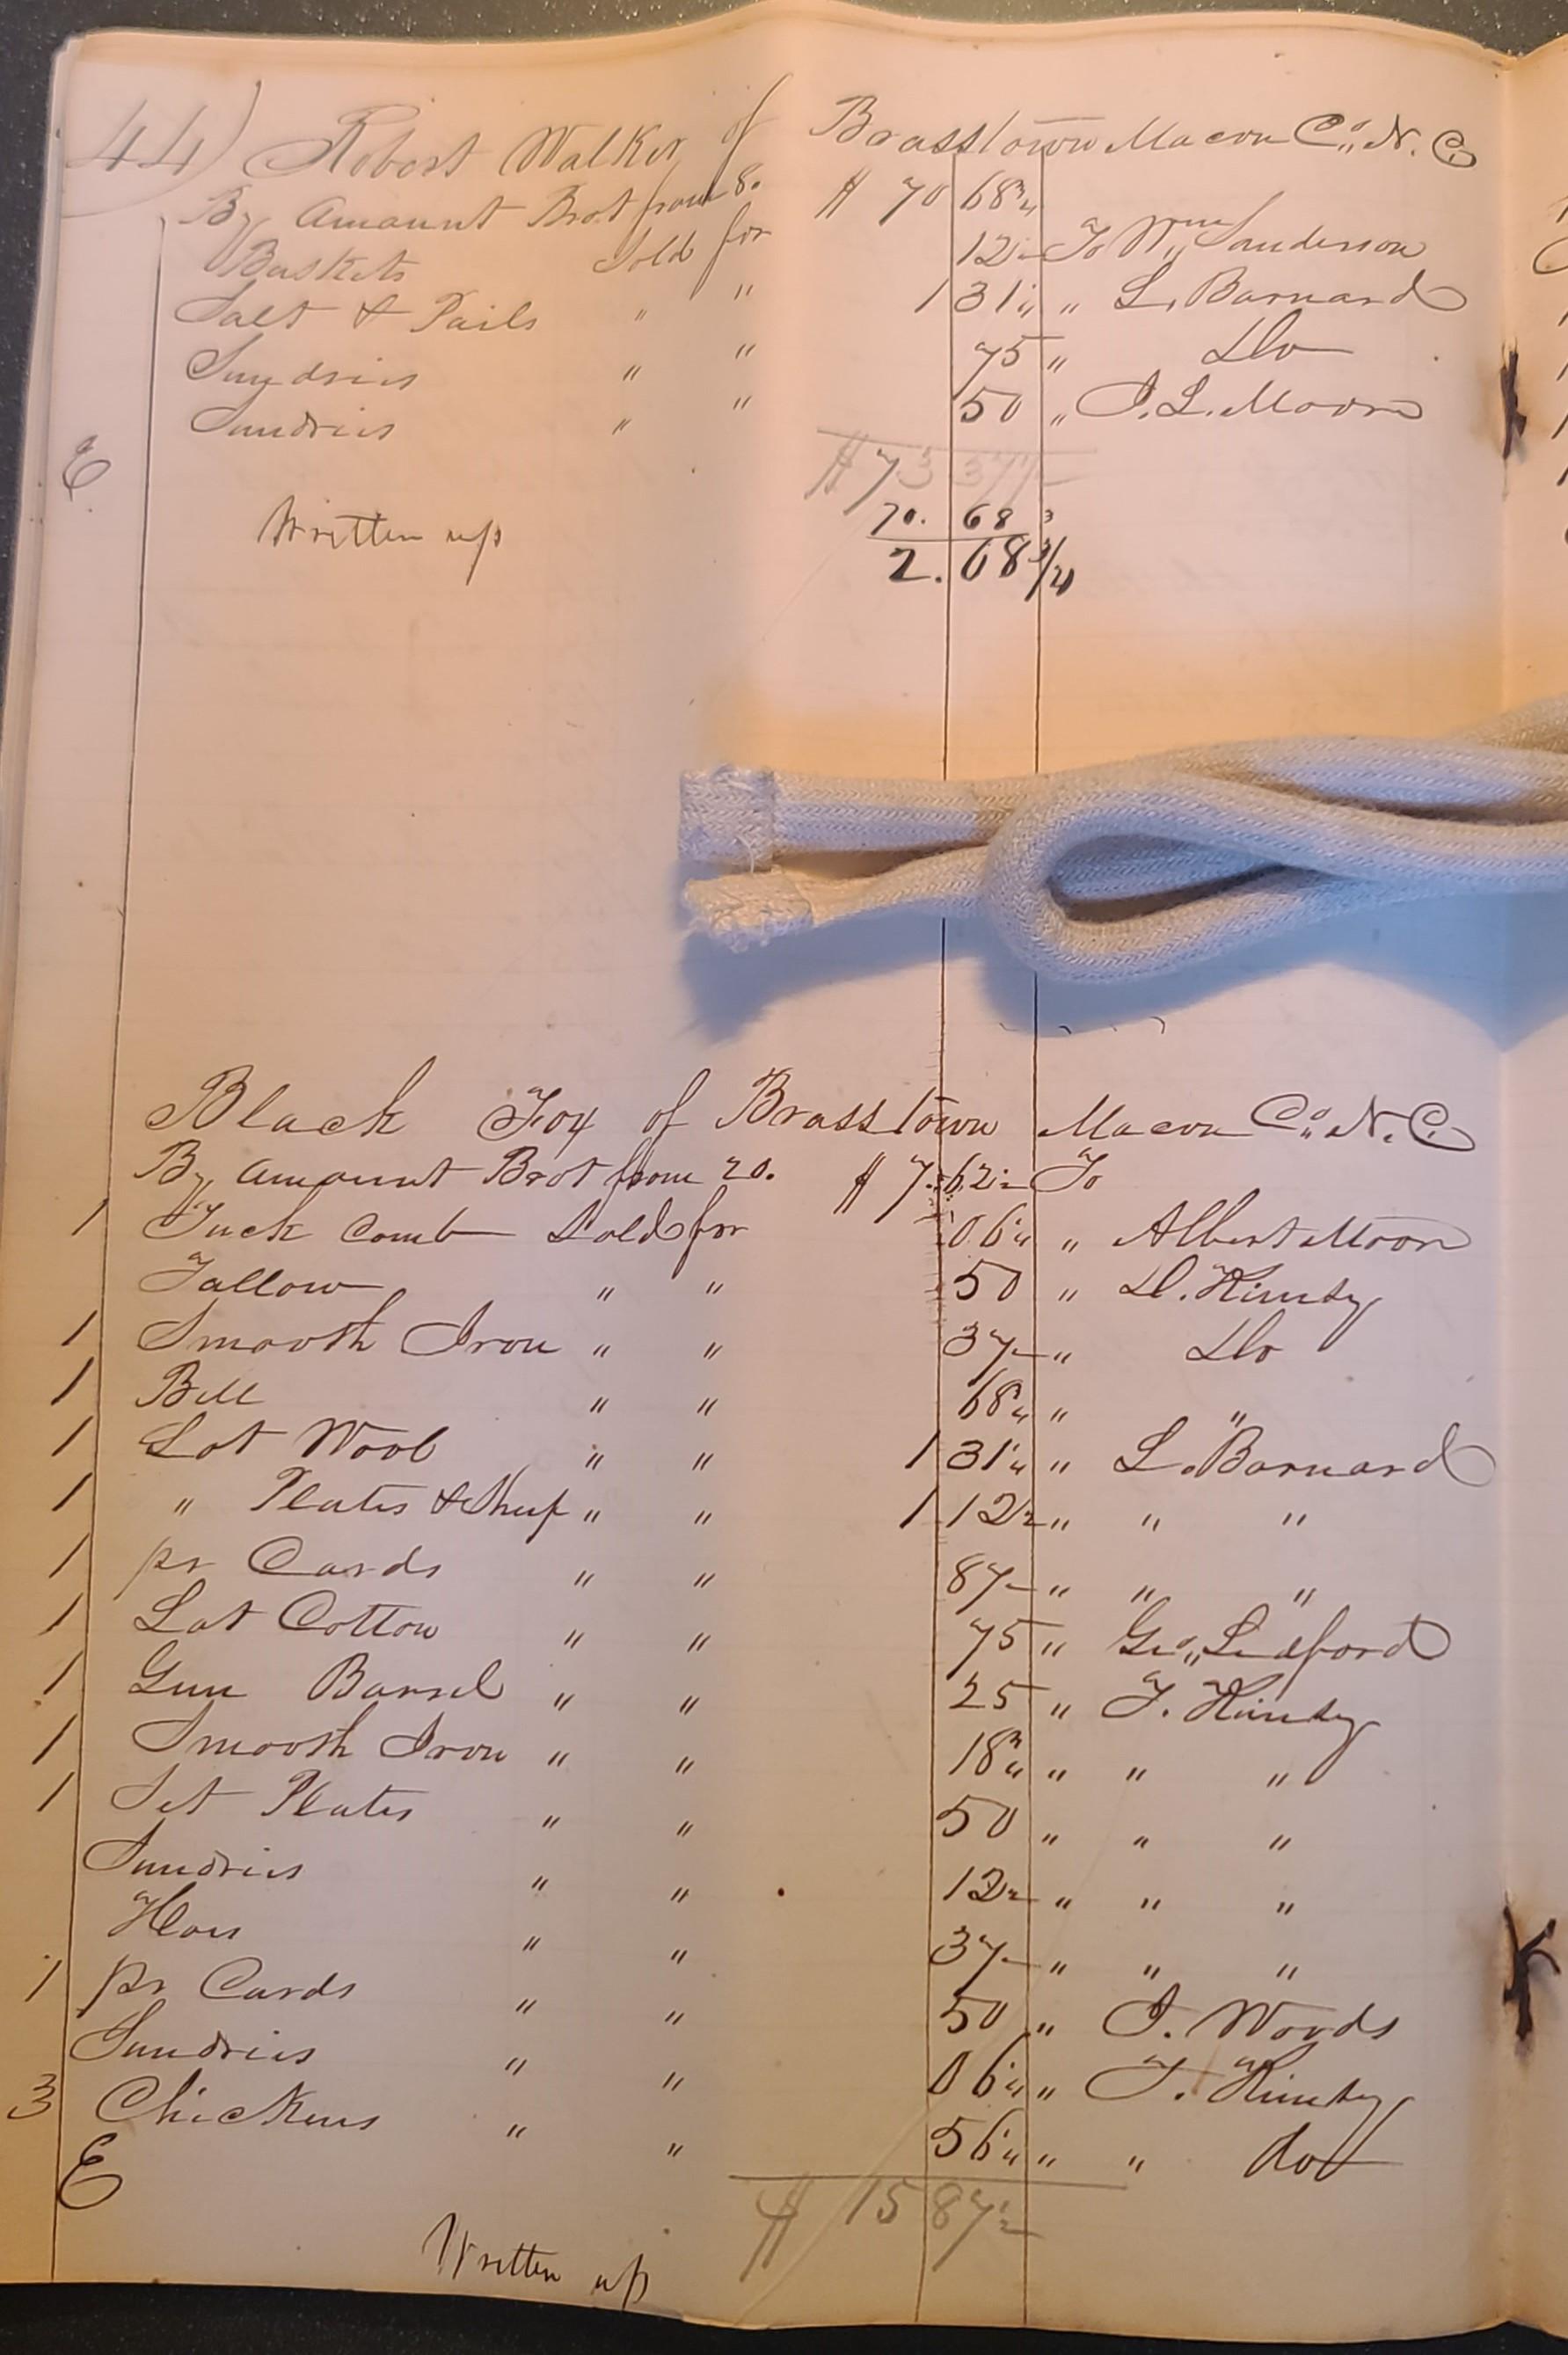 44) Robert Walker of Brasstown Macon Co,, N. C.
By Amount Brot from 8. $ 70 68 3/4
Baskets Sold for 12 1/2 To Wm,, Sanderson
Salt & Pails " " 1 31 1/4 " L. Barnard
Sundries " " 75 " Do
Sundries " " 50 " J. L. Moore
$ 73 37 1/2
70. 68 3
E
Written up 2. 68 3/4
Black Fox of Brasstown Macon Co,, N. C.
By Amount Brot from 20. $ 7 62 1/2 To
1 Tuck Comb Sold for 06 1/4 " Albert Moore
Tallow " " 50 " D. Kimsey
1 Smooth Iron " " 37 1/2 " Do
1 Bell " " 68 3/4 " "
1 Lot Wool " " 1 31 1/4 " L. Barnard
1 " Plates & Sheep " " 1 12 1/2 " " "
1 pr Cards " " 87 1/2 " " "
1 Lot Cotton " " 75 " Geo,, Ledford
1 Gun Barrel " " 25 " T. Kimsey
1 Smooth Iron " " 18 3/4 " " "
1 Set Plates " " 50 " " "
Sundries " " 12 1/2 " " "
Hoes " " 37 1/2 " " "
1 pr Cards " " 50 " J. Woods
Sundries " " 06 1/4 " T. Kimsey
3 Chickens " " 56 1/4 " " do
E
$ 15 87 1/2
Written up